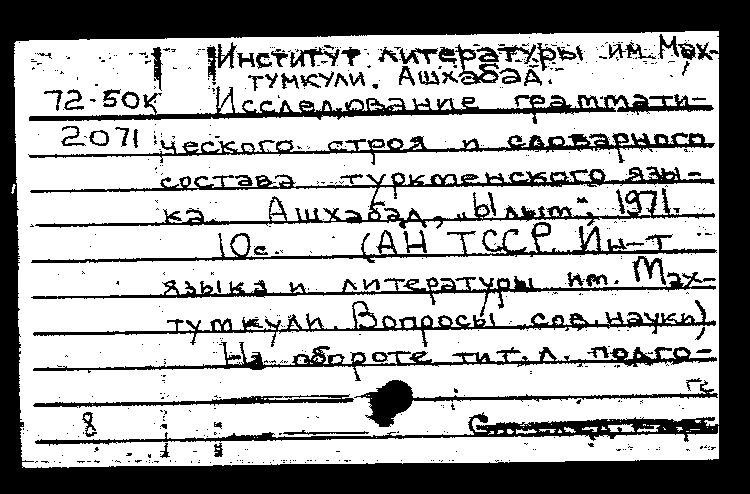 Институт литературы им. Мах-
тумкули. Ашхабад.
72-50к Исследование граммати-
2071 ческого строя и словарного
состава туркменского язы-
ка. Ашхабад, „Ылым“, 1971.
10с. (АН ТССР. Ин-т
языка и литературы им. Мах-
тумкули. Вопросы сов. науки)
На обороте тит. л. подго-
8 См. след. кар